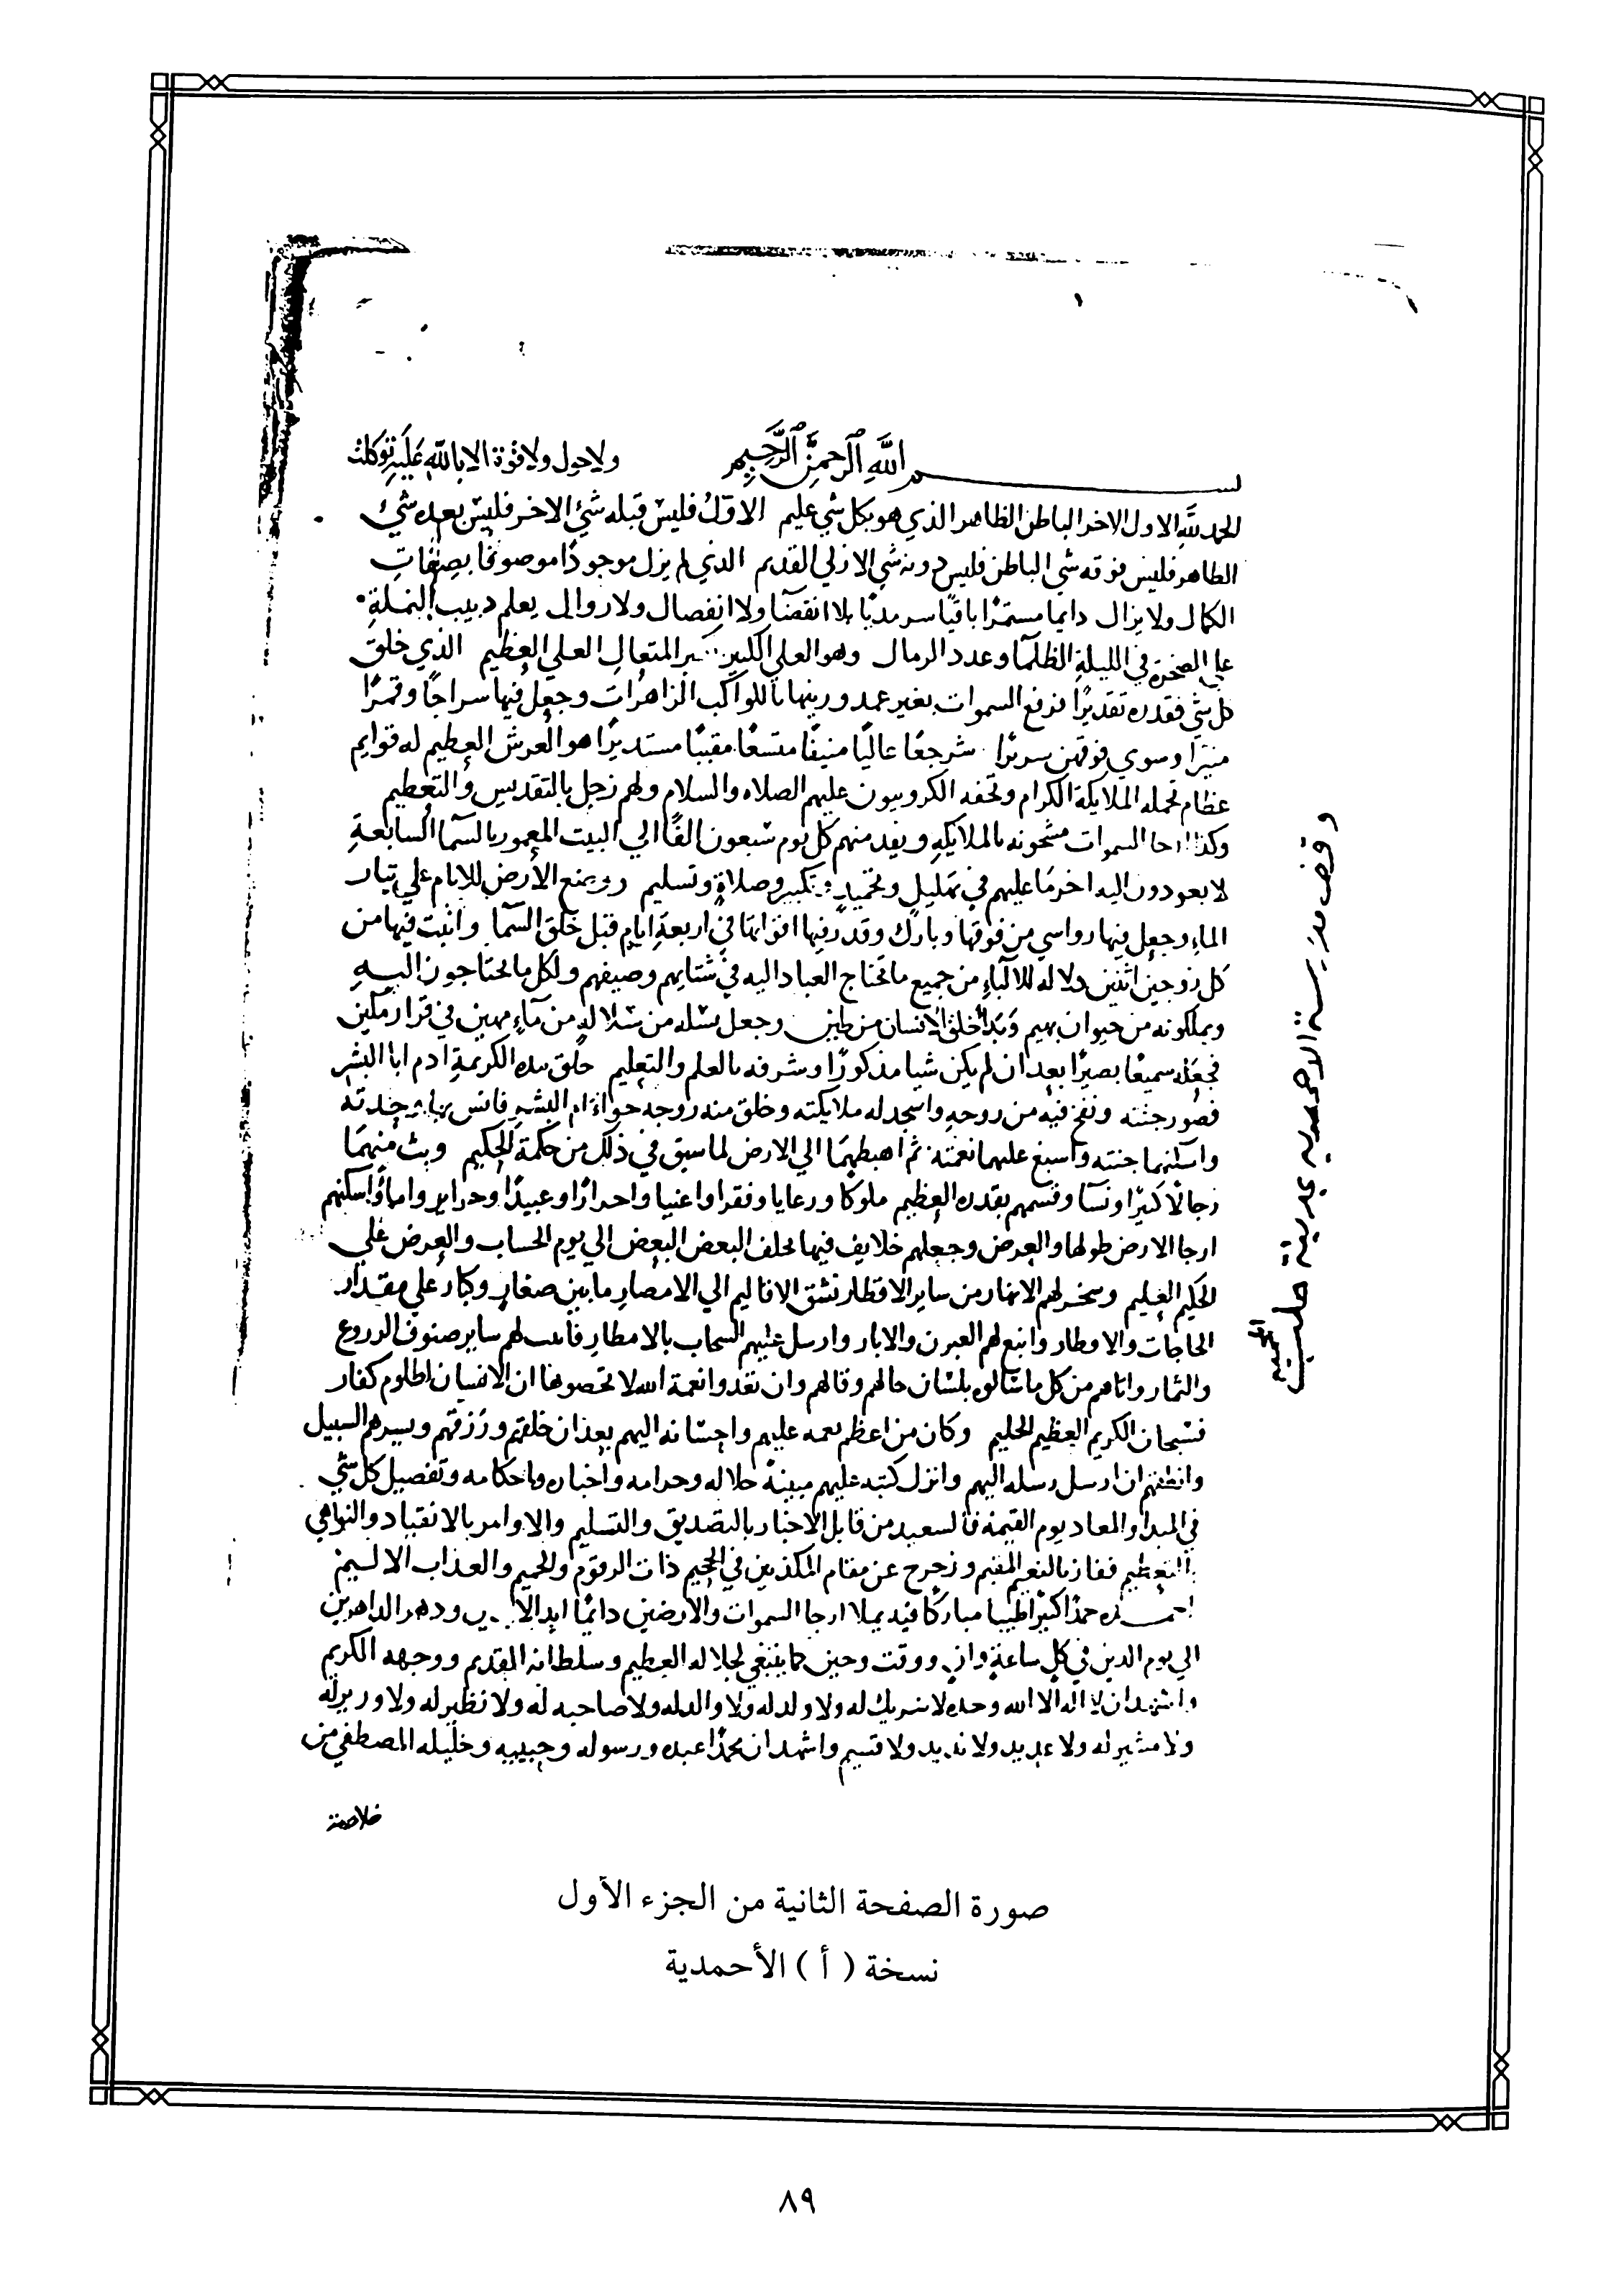 بسم الله الرحمن الرحيم ولا حول ولا قوة الا بالله عليه توكلت
الحمد لله الاول الاخر الباطن الظاهر الذي هو بكل شي عليم الاول فليس قبله شئ الاخر فليس بعده شئ
الظاهر فليس فوقه شي الباطن فليس دونه شي الازلي القديم الذي لم يزل موجودًا موصوفًا بصفات
الكمال ولا يزال دايما مستمرًا باقيًا سرمديًا بلا انقضآ ولا انفصال ولا زوال يعلم دبيب النملة
على الصخرة في الليلة الظلمآ وعدد الرمال وهو العلي الكبير المتعال العلي العظيم الذي خلق
كل شي فقدره تقديرًا فرفع السموات بغير عمد وزينها بالكواكب الزاهرات وجعل فيها سراجًا وقمرًا
منيرًا وسوي فوقهن سريرًا شرجعًا عاليًا منيفًا متسعًا مقببًا مستديرًا هو العرش العظيم له قوايم
عظام تحمله الملايكة الكرام وتحفه الكروبيون عليهم الصلاه والسلام ولهم زجل بالتقديس والتعظيم
وكذا ارجا السموات مشحونه بالملايكه ويفد منهم كل يوم سبعون الفًا الي البيت المعمور بالسمآ السابعة
لا يعودون اليه اخر ما عليهم في تهليل وتحميد وتكبير وصلاة وتسليم ووضع الأرض للانام علي تيار
الماء وجعل فيها رواسي من فوقها وبارك وقدر فيها اقواتها في اربعة ايام قبل خلق السمآ وانبت فيها من
كل زوجين اثنين دلاله للالباء من جميع ما تحتاج العباد اليه في شتايهم وصيفهم ولكل ما يحتاجون اليه
ويملكونه من حيوان بهيم وبدأ خلق الانسان من طين وجعل نسله من سلاله من مآء مهين في قرار مكين
فجعله سميعًا بصيرًا بعد ان لم يكن شيا مذكورًا وشرفه بالعلم والتعليم خلق بيده الكريمة ادم ابا البشر
فصور جثته ونفخ فيه من روحه واسجد له ملايكته وخلق منه زوجه حواء ام البشر فانس بها وحدته
واسكنهما جنته واسبغ عليهما نعمته ثم اهبطهما الي الارض لما سبق في ذلك من حكمة الحكيم وبث منهما
رجالًا كثيرًا ونسآ وقسمهم بقدره العظيم ملوكا ورعايا وفقرا واغنيا واحرارًا وعبيدًا وحراير واماءً واسكنهم
ارجا الارض طولها والعرض وجعلهم خلايف فيها يخلف البعض البعض الي يوم الحساب والعرض علي
الحكيم العليم وسخر لهم الانهار من ساير الاقطار تشق الاقاليم الي الامصار ما بين صغار وكبار علي مقدار
الحاجات والاوطار وانبع لهم العيون والابار وارسل عليهم السحاب بالامطار فانبت لهم ساير صنوف الزروع
والثمار واتاهم من كل ما سالوه بلسان حالهم وقالهم وان تعدوا نعمة الله لا تحصوها ان الانسان لظلوم كفار
فسبحان الكريم العظيم الحليم وكان من اعظم نعمه عليهم واحسانه اليهم بعد ان خلقهم ورزقهم ويسر لهم السبيل
وانطقهم ان ارسل رسله اليهم وانزل كتبه عليهم مبينة حلاله وحرامه واخباره واحكامه وتفصيل كل شي
في المبدا والمعاد يوم القيمة فالسعيد من قابل الاخبار بالتصديق والتسليم والاوامر بالانقياد والنواهي
بالتعظيم ففاز بالنعيم المقيم وزحزح عن مقام المكذبين في الجحيم ذات الزقوم والحميم والعذاب الاليم
احمده حمدًا كثيرًا طيبا مباركًا فيه يملا ارجا السموات والارضين دائمًا ابد ودهر الداهرين
الي يوم الدين في كل ساعة وان ووقت وحين كما ينبغي لجلاله العظيم وسلطانه القديم ووجهه الكريم
واشهد ان لا اله الا الله وحده لا شريك له ولا ولد له ولا والد له ولا صاحبه له ولا نظير له ولا وزير له
ولا مشير له ولا عديد ولا نديد ولا قسيم واشهد ان محمدًا عبده ورسوله وحبيبه وخليله المصطفي من
خلاصة
وقف مدرسة الاحمديه بمدينة حلب
صورة الصفحة الثانية من الجزء الأول
نسخة ( أ ) الأحمدية
٨٩